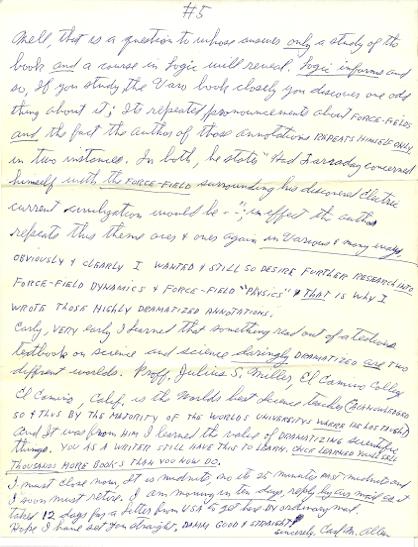 #5
Well, that is a question to whose answer only a study of the
book and a course in Logic will reveal. Logic informs and
so, If you study the Varo book closely you discover one odd
thing about it; Its repeated pronouncements about FORCE-FIELDS
and the fact the author of those annotations REPEATS HIMSELF ONLY
in two instances. In both, he states "Had Farraday concerned
himself with the FORCE-FIELD surrounding his discovered Electric
current civilization would be in effect the author
repeats this theme over & over again in various & many ways.
OBVIOUSLY & CLEARLY I WANTED & STILL SO DESIRE FURTHER RESEARCH INTO
FORCE-FIELD DYNAMICS & FORCE-FIELD "PHYSICS" & THAT IS WHY I
WROTE THOSE HIGHLY DRAMATIZED ANNOTATIONS.
Early, VERY early I learned that something read out of a tedious
textbook on science and science daringly DRAMATIZED are two
different worlds. Proff. Julius S. Miller, El Camino College
El Camino, Calif. is the Worlds best Science teacher (ACKNOWLEDGED
SO & THUS BY THE MAJORITY OF THE WORLDS UNIVERSITYS WHERE HE HAS TAUGHT)
and It was from HIM I learned the value of DRAMATIZING scientific
things. YOU AS A WRITER STILL HAVE THIS TO LEARN. ONCE LEARNED WILL SELL
THOUSANDS MORE BOOKS THAN YOU NOW DO.
I must close now, It is midnite, no its 25 minutes past midnite and
I soon must retire. I am moving in ten days, reply by air mail as it
takes 12 days for a letter from USA to get here by ordinary mail.
Hope I have set you straight, DAMN GOOD & STRAIGHT!
Sincerely, Carl M. Allen